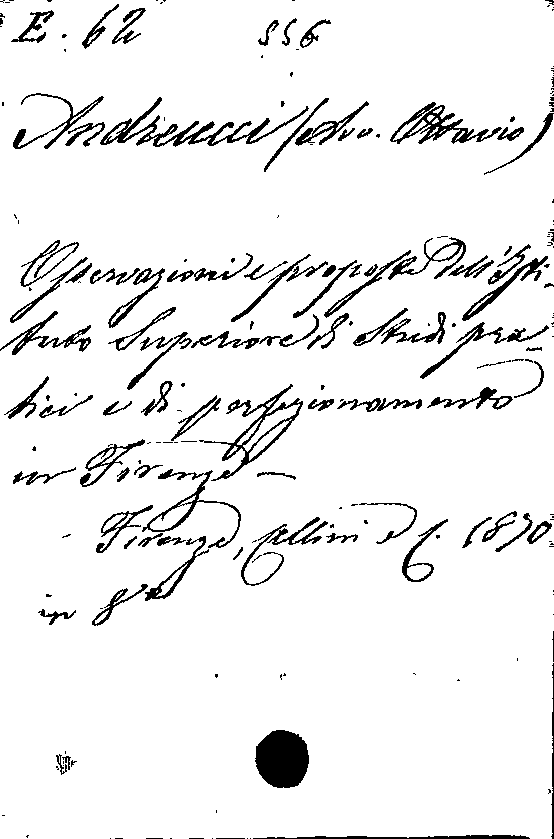 E. 62 556
Andreucci (Avv. Ottavio)
Osservazioni e proposte dell'Isti-
tuto Superiore di Studi pra-
tici e di perfezionamento
in Firenze —
Firenze, Cellini e C. 1870
in 8º